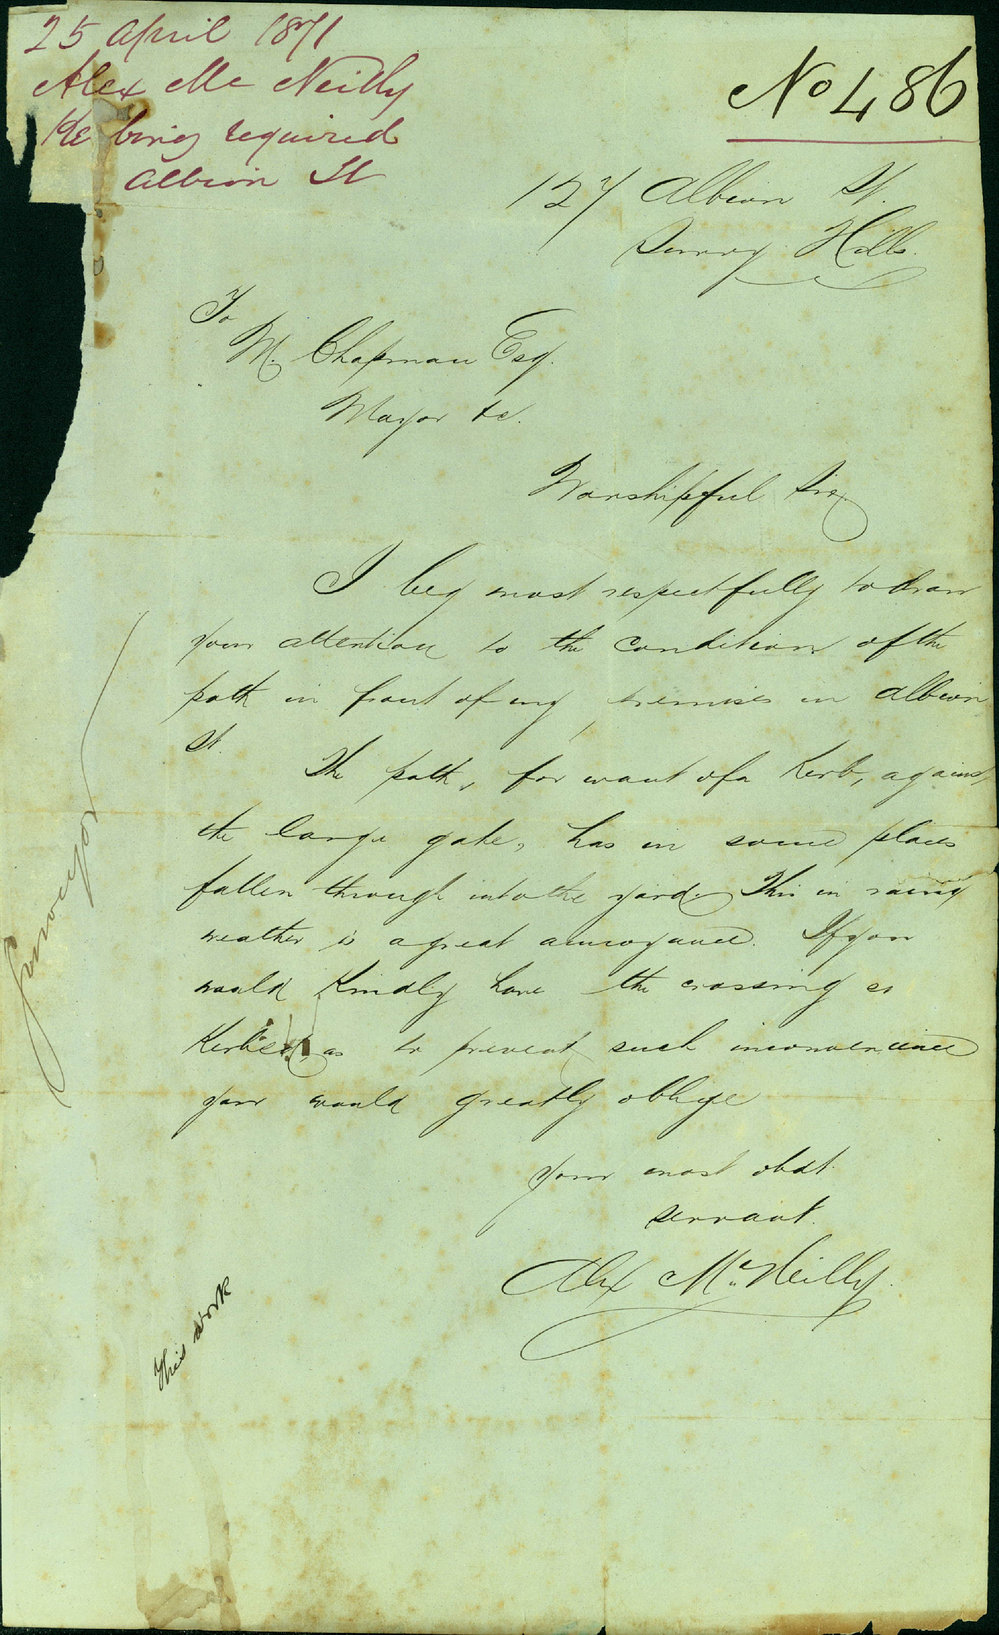 25 April 1871
Alex Mc Neilly
Ke bing required
Albion St
No 486
127 Albion St.
Surry Hills.
To
M. Chapman Esq.
Mayor &c.
Worshipful Sir
I beg most respectfully to draw
your attention to the condition of the
path in front of my premises in Albion
St.
The path, for want of a Kerb, against
the large gate, has in some places
fallen through into the yard. This in rainy
weather is a great annoyance. If you
would Kindly have the crossing so
Kerbed, as to prevent such inconvenience
you would greatly oblige
your most obdt.
servant.
Alex McNeilly.
Surveyor
This work